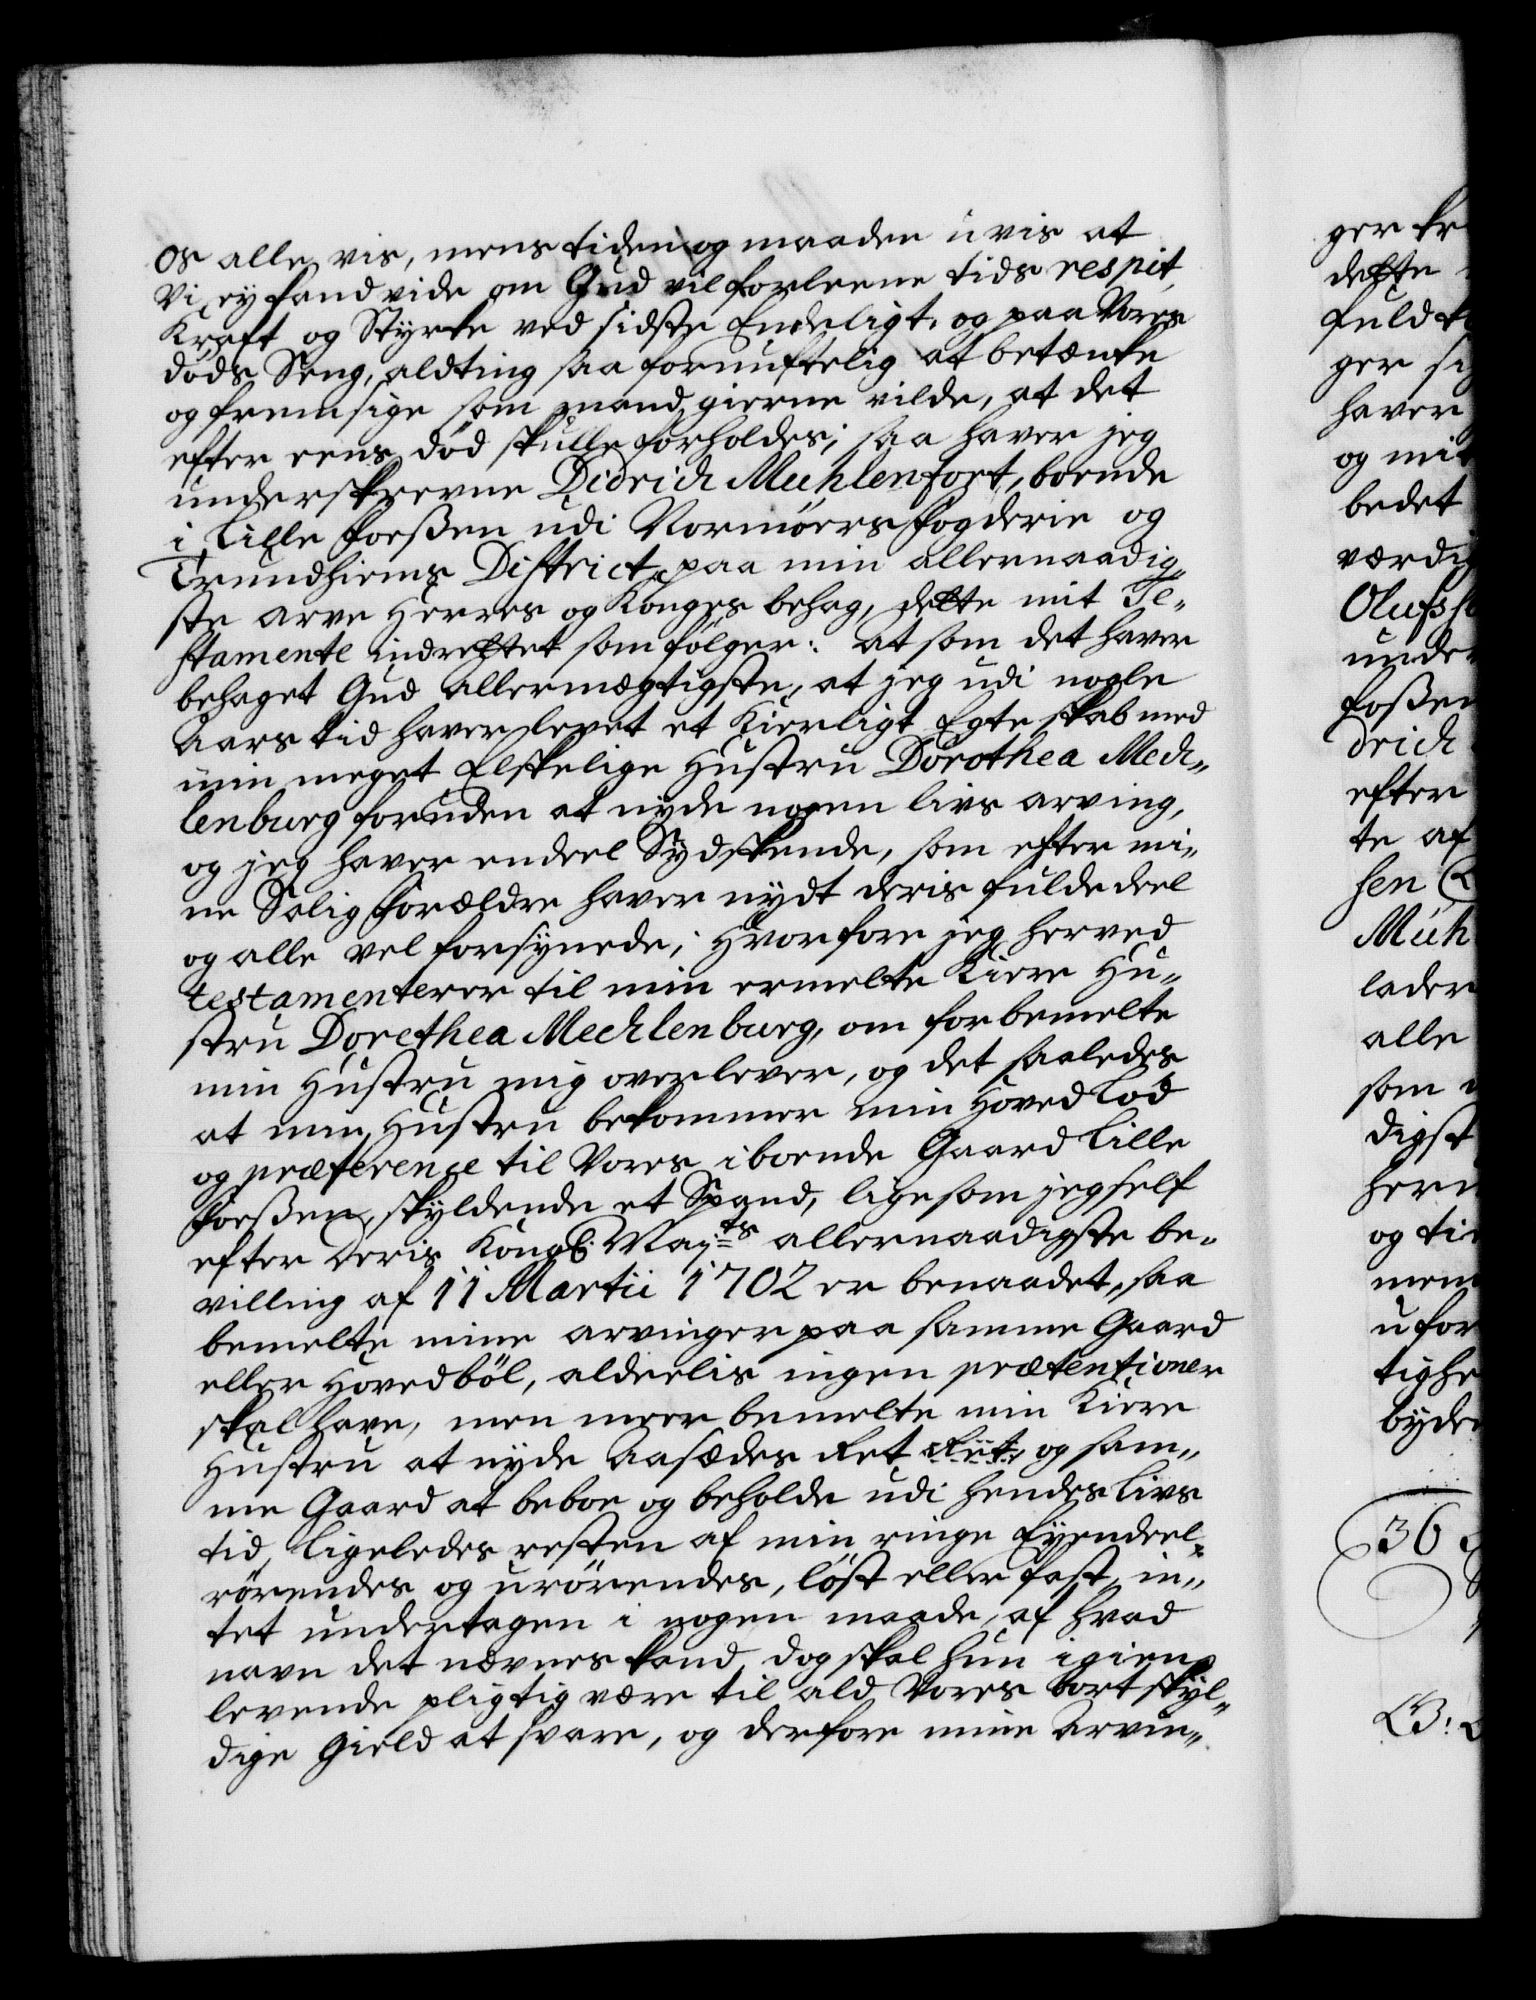 os alle vis, mens tiden og maaden uvis at
Vi ey kand vide om Gud vil forleene tids respit,
Kraft og Styrke ved sidste Endeligt, og paa Vores
döds Seng, aldting saa fornuftelig at betænke
og fremsige som mand gierne vilde, at det
efter eens död skulle forholdes; saa haver jeg
underskrevne Didrich Muhlenfort, boende
i Lille Forßen udi Normöers Fogderie og
Trundhiems District, paa min allernaadig„
ste arve Herres og Konges behag, dette mit Te„
stamente indrettet som fölger: at som det haver
behaget Gud allermægtigste, at jeg udi nogle
Aars tid haver levet et Kierligt Egteskab med
min meget Elskelige Hustru Dorothea Mech„
lenburg foruden at nyde nogen livs arving,
og jeg haver endeel Sydskende, som efter mi„
ne Salig Forældre haver nydt deris fulde deel
og alle vel forsynede; Hvorfore jeg herved
testamenterer til min ermelte Kiere Hu„
stru Dorethea Mechlenburg, om forbemelte
min Hustru mig overlever, og det saaledes
at min Hustru bekommer min Hoved Lod
og præference til Vores iboende Gaard Lille
Forßen, skyldende et Spand, ligesom jeg self
efter Deris Kongl. May:ts allernaadigste be„
villing af 11 Martii 1702 er benaadet, saa
bemelte mine arvinger paa samme Gaard
eller Hovedböl, aldeelis ingen prætentioner
skal have, men meer bemelte min Kiere
Hustru at nyde Aasædes Ret og sam„
me Gaard at beboe og beholde udi hendes Livs
tid, Ligeledes resten af min ringe Eyendeel„
rörendes og urörendes, löst eller fast, in„
tet undertagen i nogen maade, af hvad
navn det nævnes kand, dog skal hun igien
levende pligtig være til ald Vores bortskyl„
dige Gield at svare, og derfore mine Arvin„
ger
dette
fuld
ger
haver
og mit
bedet
værdig
Olufs
under
Foßen
drich
efter
te af
sen
Müh
lader
alle
som
digst
og
ufor
tighe
byde
36